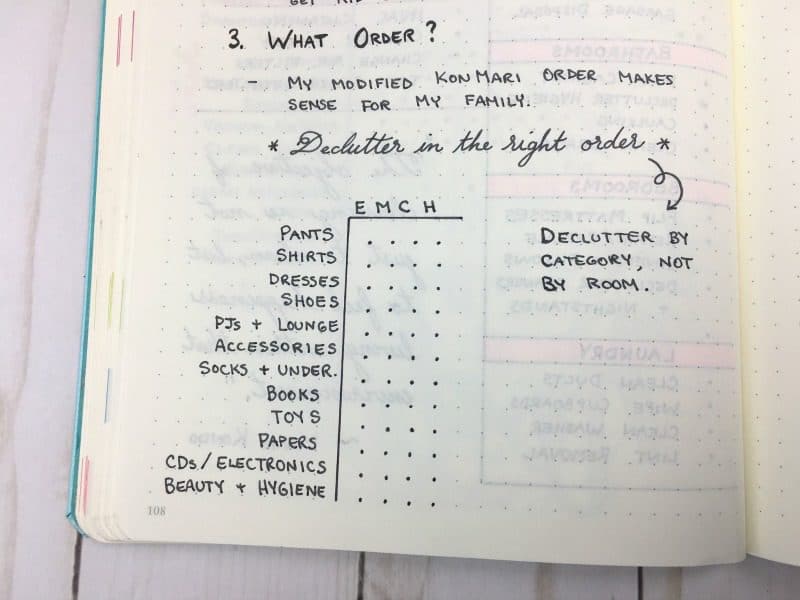 3. WHAT ORDER?
- MY MODIFIED KONMARI ORDER MAKES
SENSE FOR MY FAMILY.
* Declutter in the right order *
E M C H
PANTS
SHIRTS
DRESSES
SHOES
PJs + LOUNGE
ACCESSORIES
SOCKS + UNDER.
BOOKS
TOYS
PAPERS
CDs/ELECTRONICS
BEAUTY + HYGIENE
DECLUTTER BY
CATEGORY, NOT
BY ROOM.
108